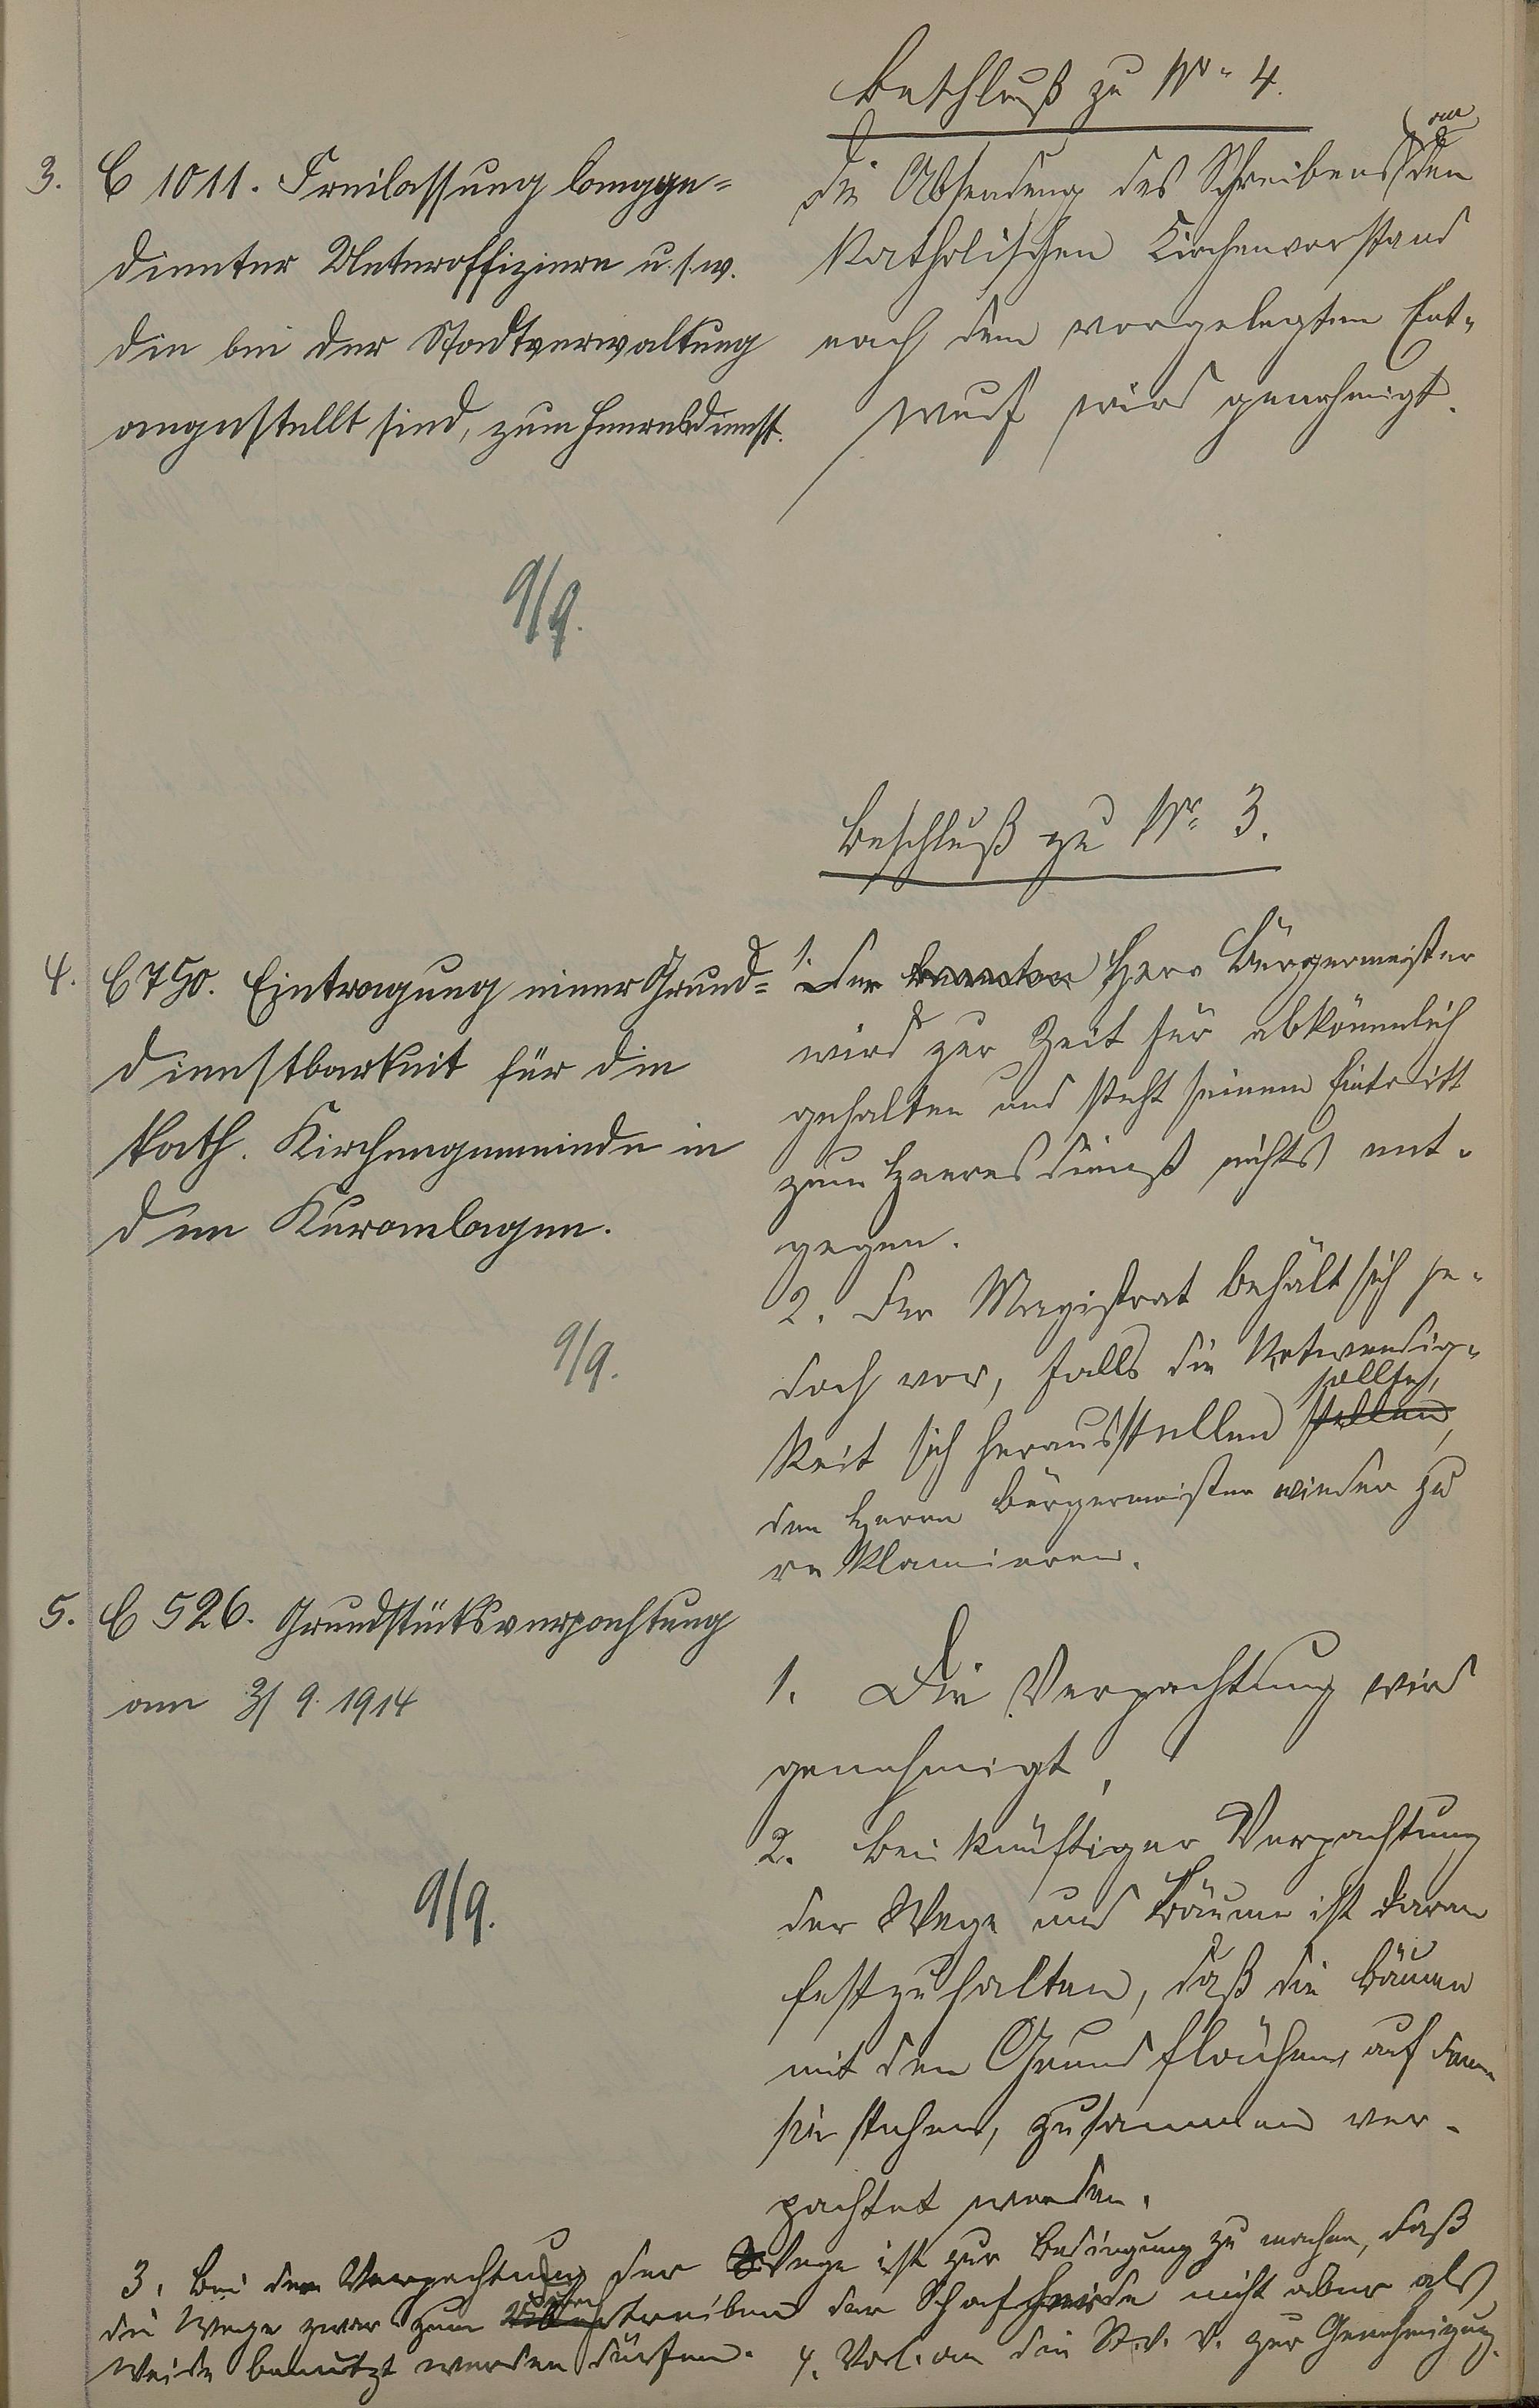 3. C 1011. Freilassung langge=
dienter Unteroffiziere u.s.w.
die bei der Stadtverwaltung
angestellt sind, zum Heeresdienst.
9/9.
Beschluß zu Nr. 4.
Die Absendung des Schreibens an den
Katholischen Kirchenvorstand
nach dem vorgelegten Ent-
wurf wird genehmigt.
4. C 750. Eintragung einer Grund=
dienstbarkeit für die
kath. Kirchengemeinde in
den Kuranlagen.
9/9.
Beschluß zu Nr. 3.
1. Der Herr Bürgermeister
wird zur Zeit für abkömmlich
gehalten und steht seinem Eintritt
zum Heeresdienst nichts ent-
gegen.
2. Der Magistrat behält sich je-
doch vor, falls die Notwendig-
keit sich herausstellen sollte,
den Herrn Bürgermeister wieder zu
reklamieren.
5. C 526. Grundstücksverpachtung
am 3/9. 1914
9/9.
1. Die Verpachtung wird
genehmigt,
2. Bei künftiger Verpachtung
der Wege und Bäume ist daran
festzuhalten, daß die Bäume
mit den Grundflächen, auf denen
sie stehen, zusammen ver-
pachtet werden.
3. Bei der Verpachtung der Wege ist zur Bedingung zu machen, daß
die Wege zwar zum Durchtreiben der Schafherde nicht aber als
Weide benutzt werden dürfen. 4. Vorl. an die St. V. V. zur Genehmigung.